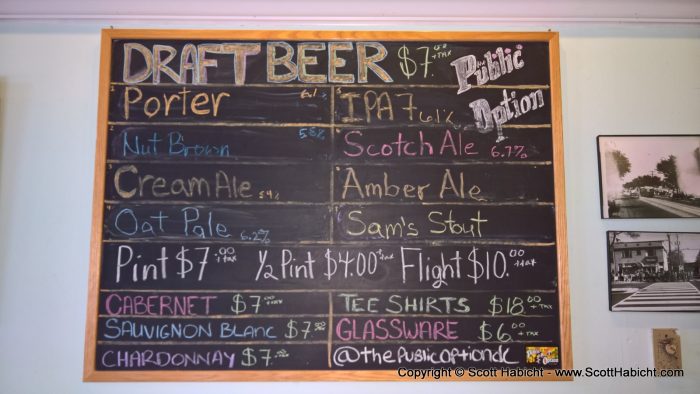 DRAFT BEER $7.00 +TAX
The Public Option
Porter 6.1%
IPA 7 6.1%
Nut Brown 5.8%
Scotch Ale 6.7%
Cream Ale 5.9%
Amber Ale
Oat Pale 6.2%
Sam's Stout
Pint $7.00 +tax ½ Pint $4.00 +tax Flight $10.00 +tax
CABERNET $7.00 +TAX
TEE SHIRTS $18.00 +TAX
SAUVIGNON BLANC $7.00
GLASSWARE $6.00 +TAX
CHARDONNAY $7.00
@thePublicOptionDC
Copyright © Scott Habicht - www.ScottHabicht.com